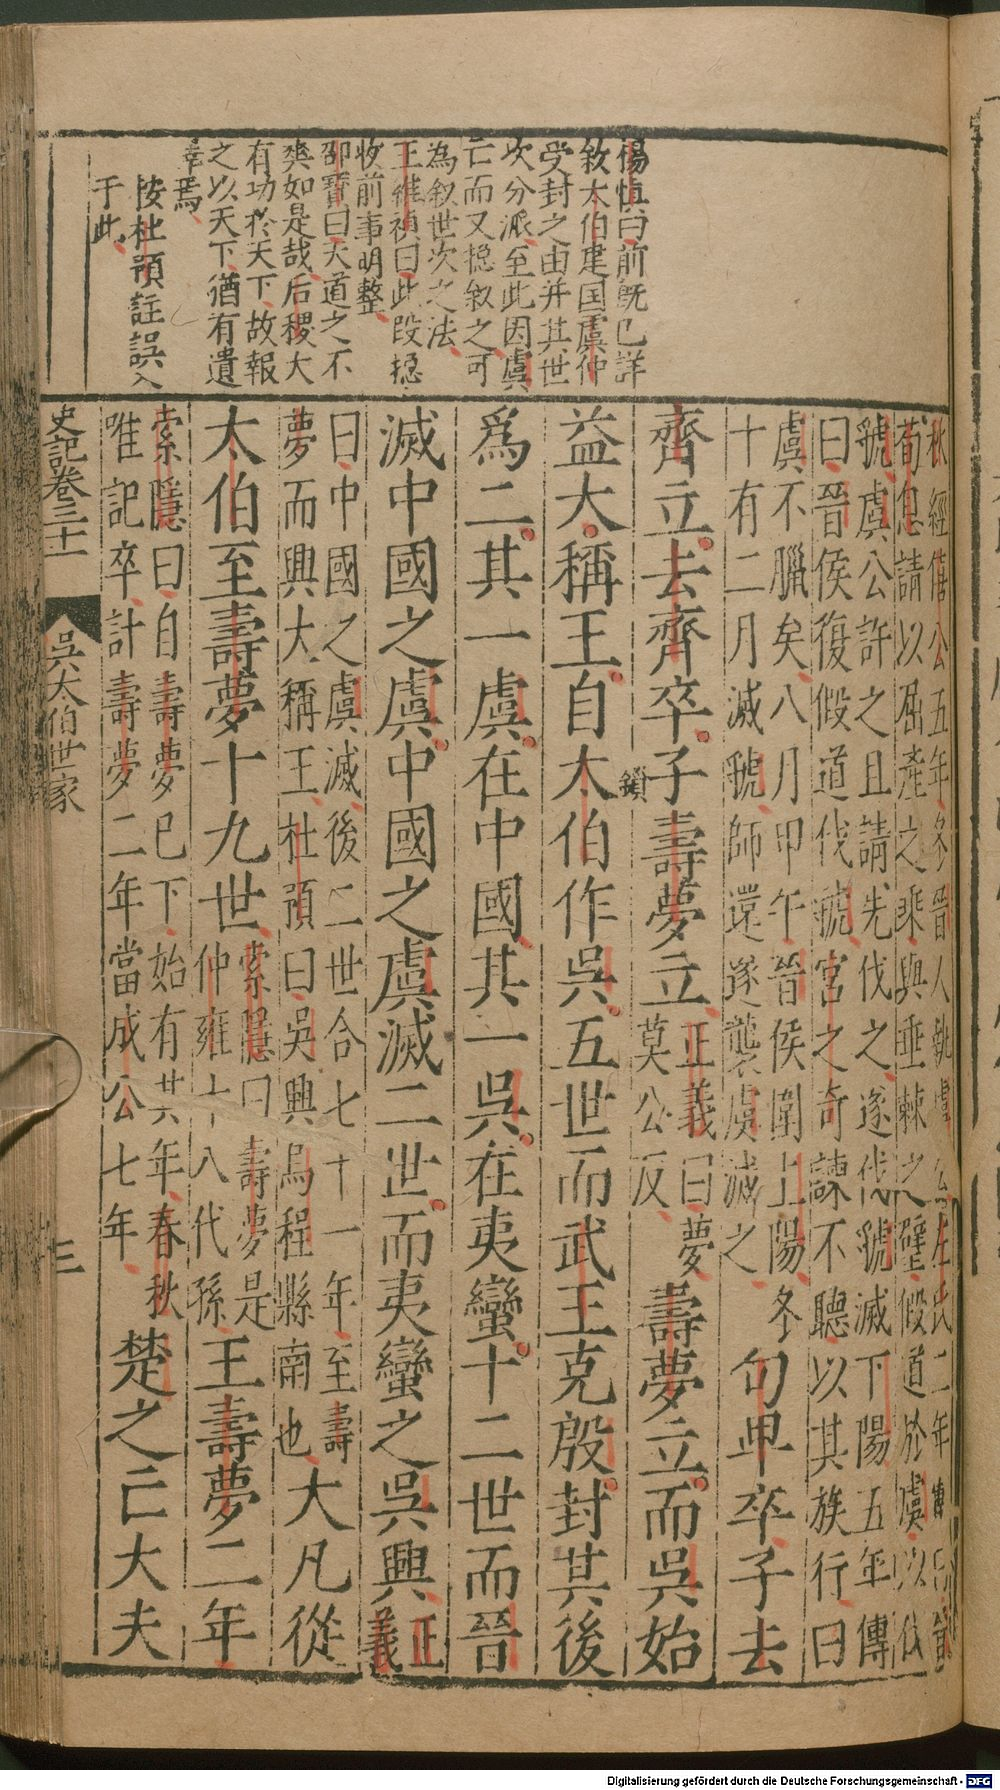 楊慎曰前既已詳
敘太伯建国虞仲
受封之由并其世
次分派至此因虞
亡而又總叙之可
為叙世次之法
王維禎曰此段總
收前事明整
邵寶曰天道之不
爽如是哉后稷大
有功於天下故報
之以天下猶有遺
焉
按杜預註誤入
于此
秋經僖公五年冬晉人執虞公左氏二年傳曰晉
荀息請以屈產之乘與垂棘之璧假道於虞以伐
虢虞公許之且請先伐之遂伐虢滅下陽五年傳
曰晉侯復假道伐虢宮之奇諫不聽以其族行曰
虞不臘矣八月甲午晉侯圍上陽冬
十有二月滅虢師還遂襲虞滅之
句卑卒子去
齊立去齊卒子壽夢立
正義曰夢
莫公反
壽夢立而吳始
鎖
益大稱王自太伯作吳五世而武王克殷封其後
爲二其一虞在中國其一吳在夷蠻十二世而晉
滅中國之虞中國之虞滅二世而夷蠻之吳興
正
義
曰中國之虞滅後二世合七十一年至壽
夢而興大稱王杜預曰吳興烏程縣南也
大凡從
太伯至壽夢十九世
索隱曰壽夢是
仲雍十八代孫
王壽夢二年
索隱曰自壽夢已下始有其年春秋
唯記卒計壽夢二年當成公七年
楚之亡大夫
史記卷三十一
吳太伯世家
三
Digitalisierung gefördert durch die Deutsche Forschungsgemeinschaft - DFG